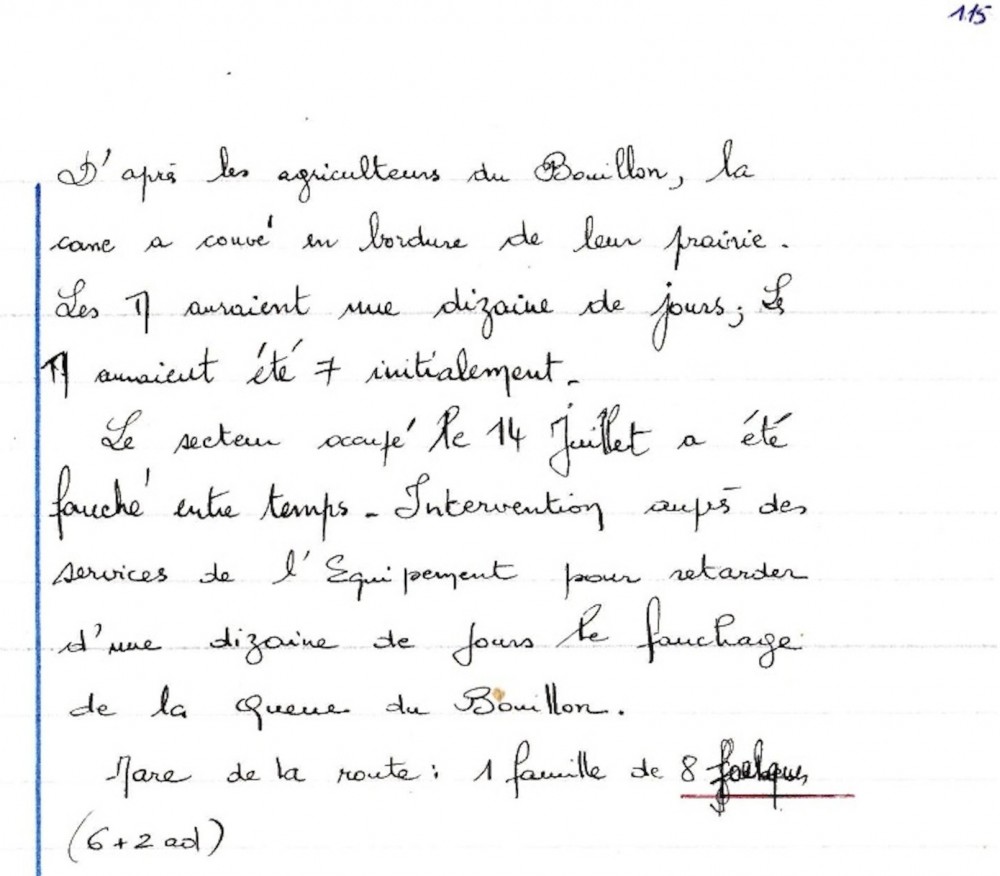 115
D'après les agriculteurs du Bouillon, la
cane a couvé en bordure de leur prairie.
Les auraient une dizaine de jours ; Le
auraient été 7 initialement.
Le secteur occupé le 14 Juillet a été
fauché entre temps. Intervention auprès des
services de l'Equipement pour retarder
d'une dizaine de jours le fauchage
de la queue du Bouillon.
Mare de la route : 1 famille de 8 foulques
(6 + 2 ad)